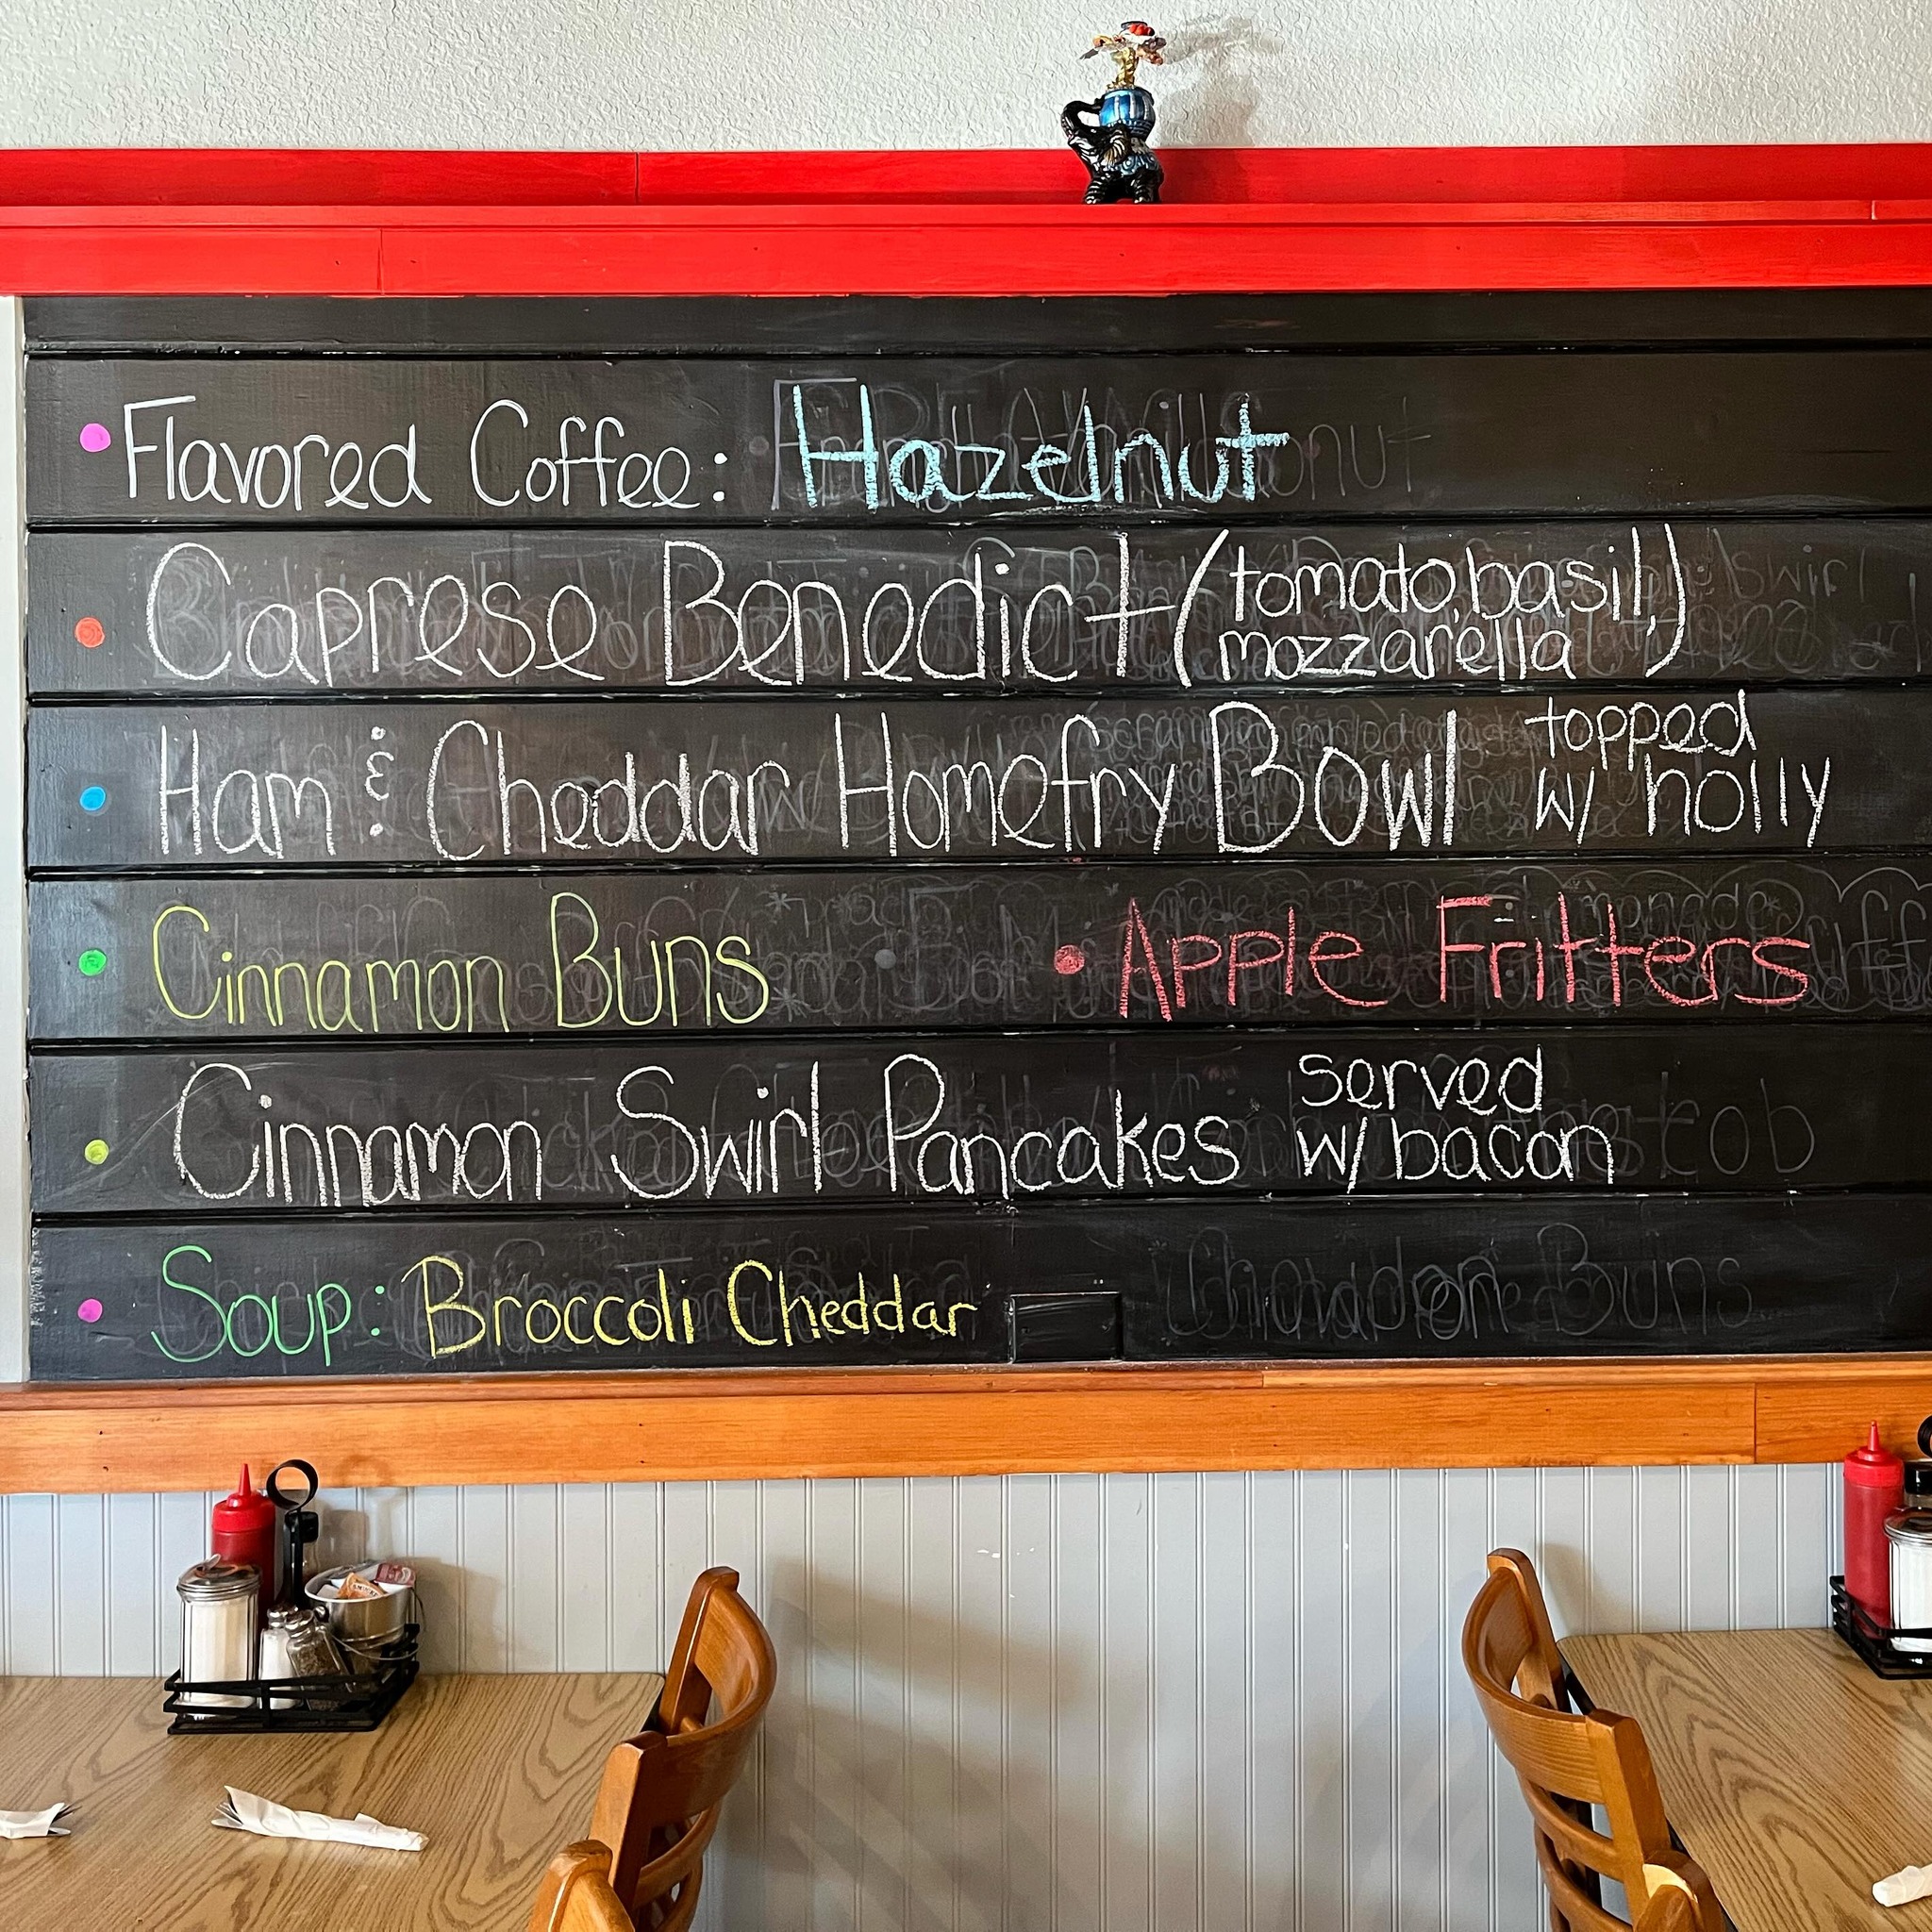 Flavored Coffee: Hazelnut
Caprese Benedict (tomato, basil, mozzarella)
Ham & Cheddar Homefry Bowl topped w/ holly
Cinnamon Buns • Apple Fritters
Cinnamon Swirl Pancakes served w/ bacon
Soup: Broccoli Cheddar